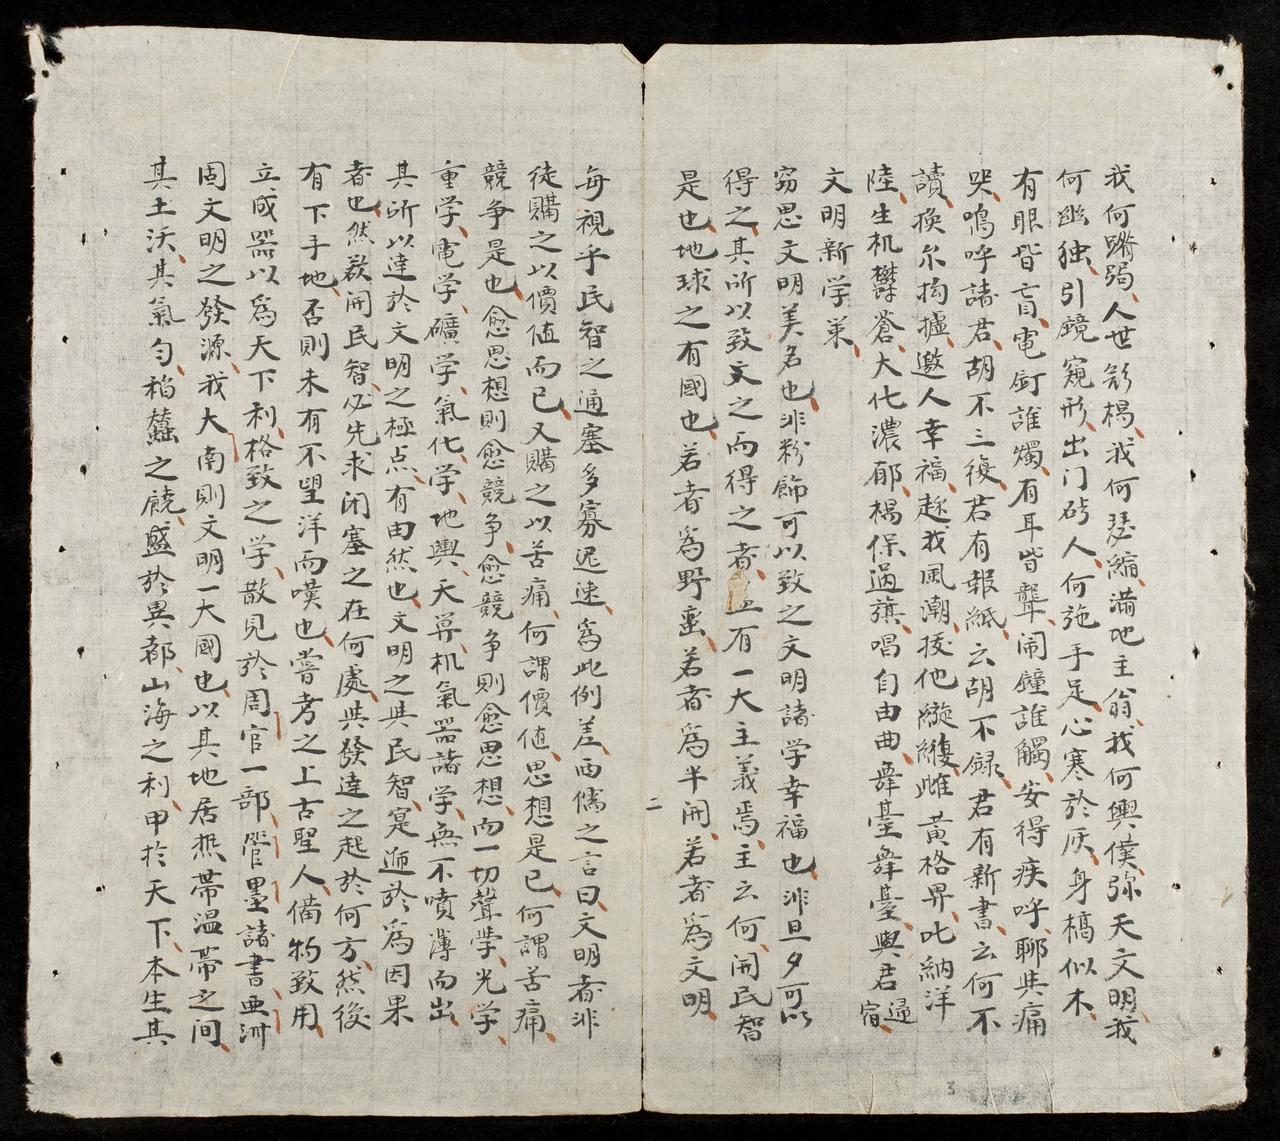 我何蹐跼人世谿榻我何瑟縮滿地主翁我何輿僕弥天文明我
何幽独引鏡窺形出门砖人何施手足心寒於灰身槁似木
有眼皆盲電灯誰燭有耳皆聾闹鐘誰觸安得疾呼聊與痛
哭嗚呼諸君胡不三復君有報紙云胡不録君有新書云何不
讀換尔拘攎邀人幸福趂我風潮拔他縦雌黄格昇叱納洋
陸生机欝蒼大化濃郁楊保過旗唱自由曲舞臺舞臺與君逼宿
文明新学策
窃思文明美名也非粉飾可以致之文明諸学幸福也非旦夕可以
得之其所以致文之而得之者有一大主義焉主云何開民智
是也地球之有國也若者為野蛮若者為半開若者為文明
二
每視乎民智之通塞多寡迟速為此例差西儒之言曰文明者非
徒購之以價值而已又購之以苦痛何謂價值思想是已何謂苦痛
競争是也愈思想則愈競争愈競争則愈思想而一切聲学光学
重学電学礦学氣化学地輿天算机氣器諸学無不噴薄而出
其所以達於文明之極点有由然也文明之與民智寔逓於為因果
者也然欲開民智必先求闭塞之在何處與發達之起於何方然後
有下手地否則未有不望洋而嘆也嘗考之上古聖人備物致用
立成器以為天下利格致之学散見於周官一部管墨諸書亜洲
固文明之發源我大南則文明一大國也以其地居热帯温帯之間
其土沃其氣匀稻蠶之饒盛於異都山海之利甲於天下本生其
3